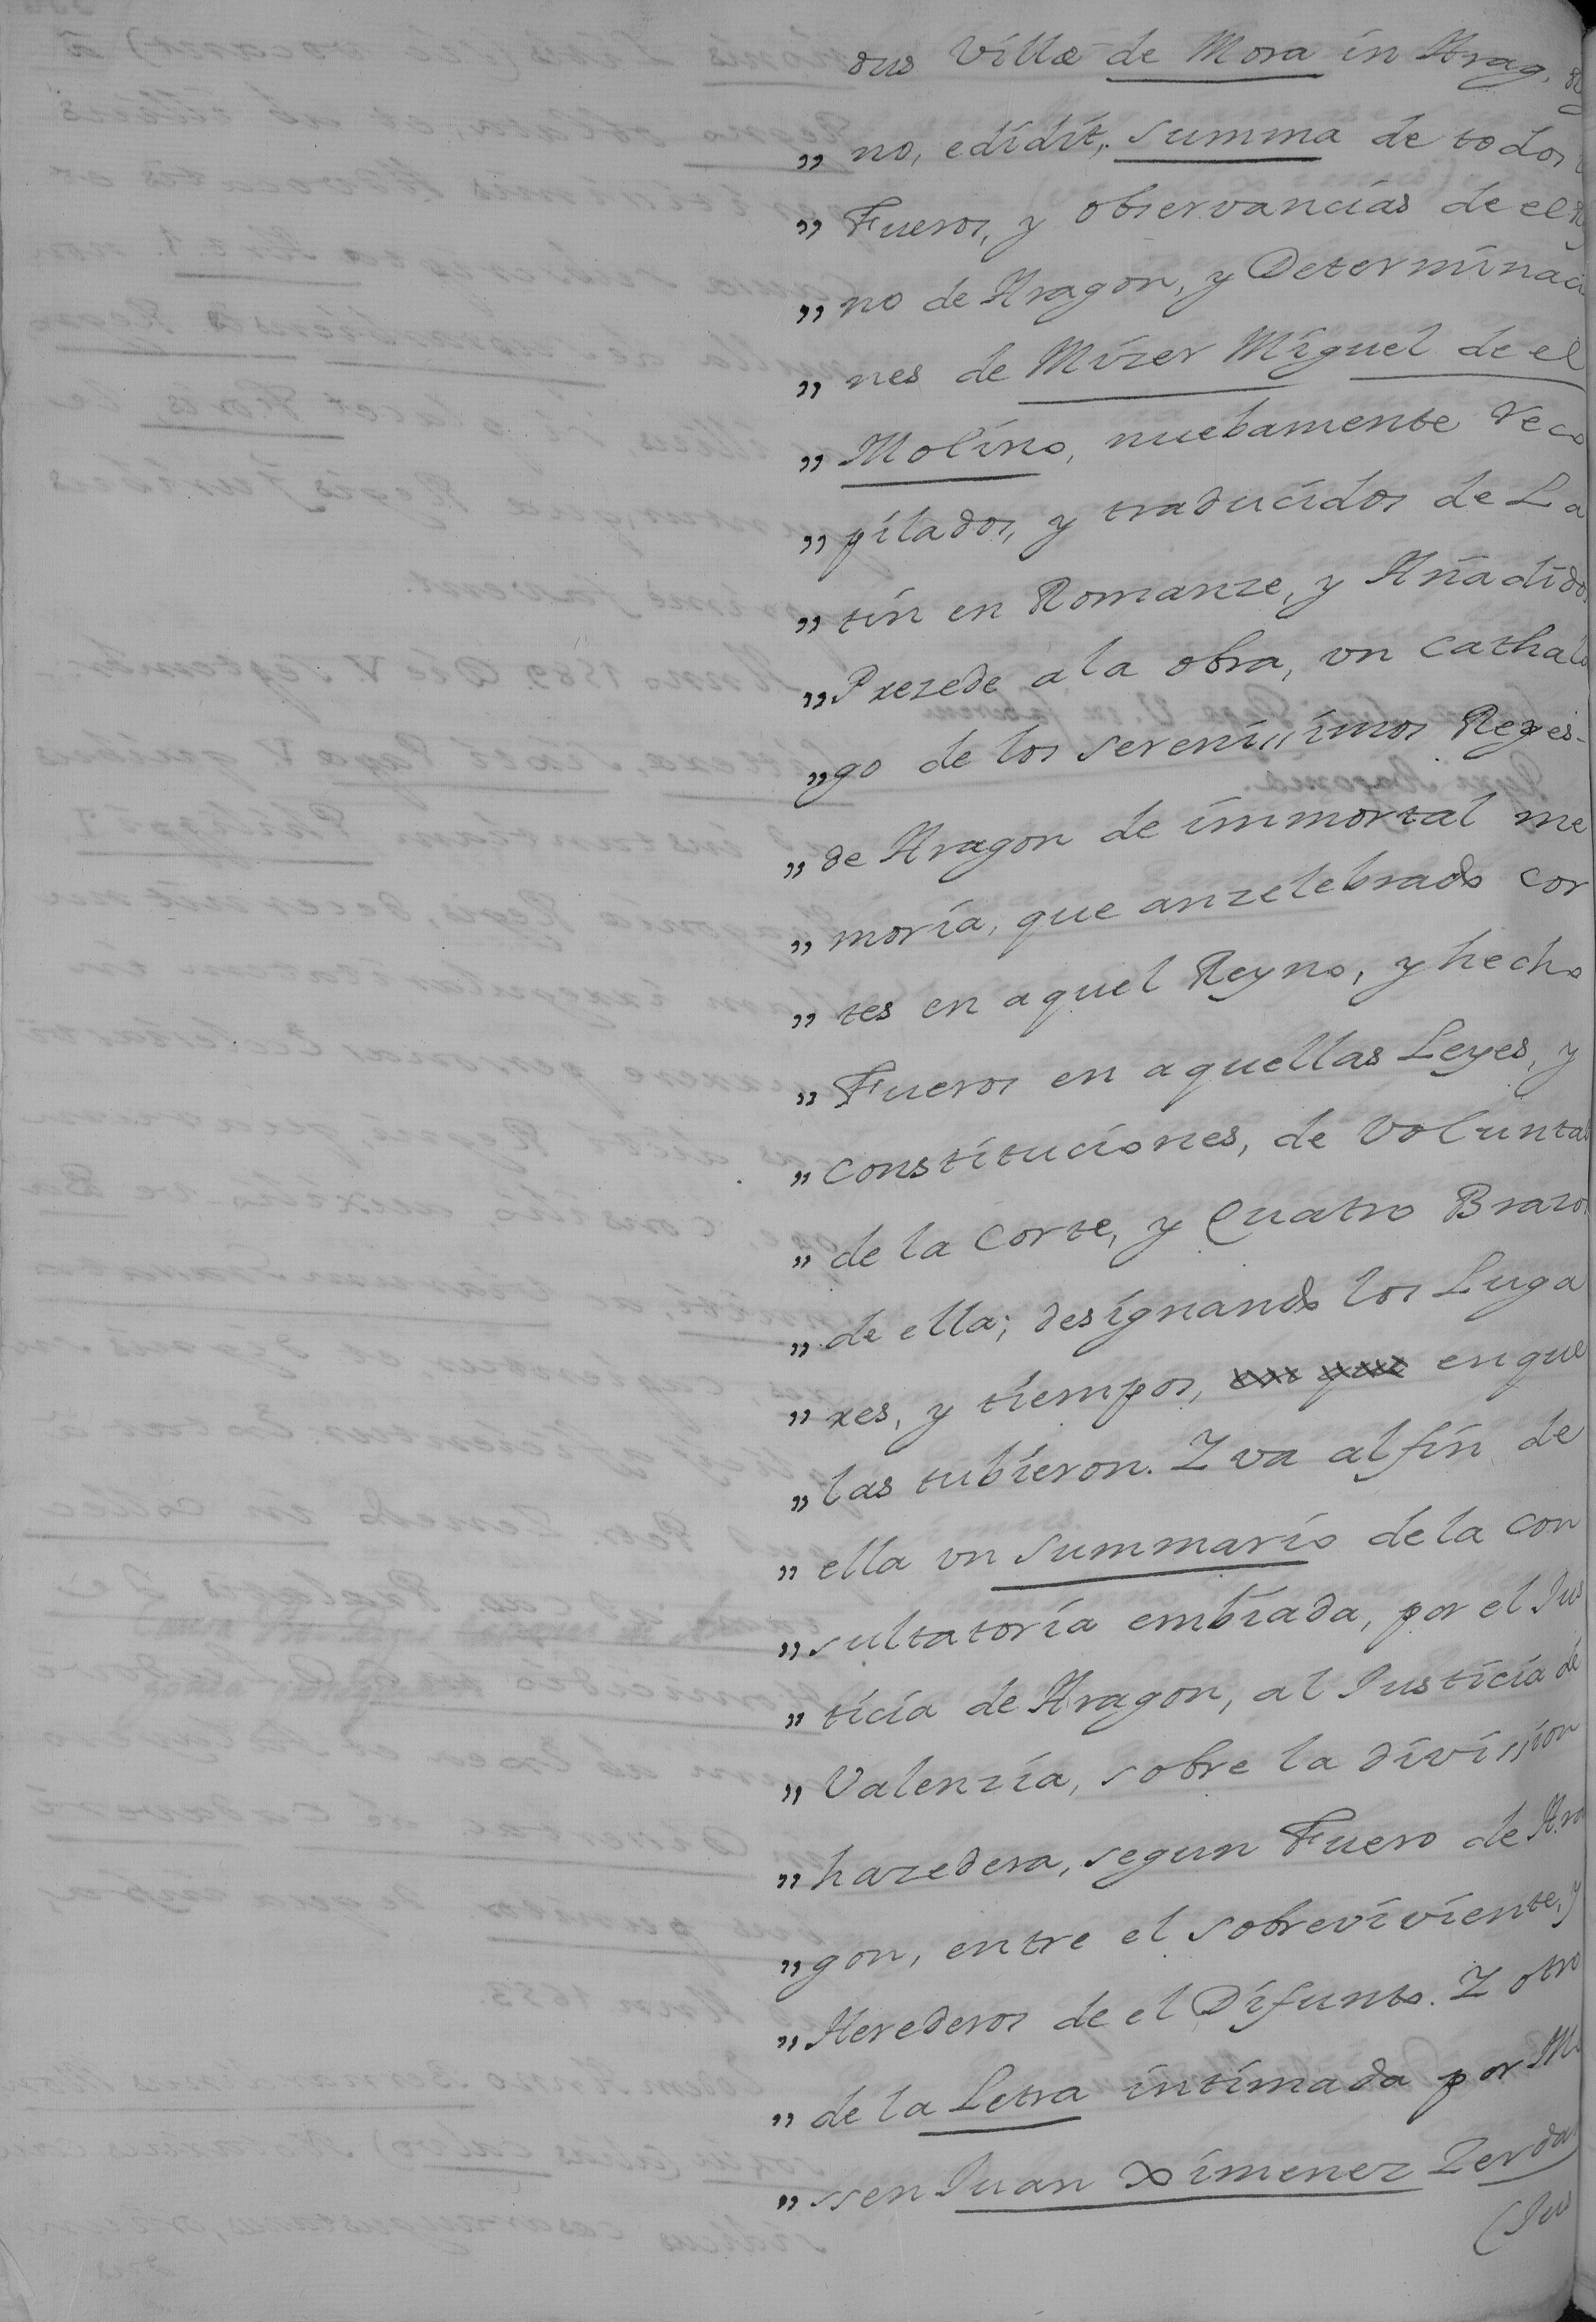 dus Villæ de Mora in Arag.
„ no, edidit, summa de todos
„ Fueros, y observancias de el
„ no de Aragon, y Determinaci
„ nes de Mizer Miguel de el
„ Molino, nuebamente reco
„ pilados, y traducidos de La
„ tin en Romanze, y Añadidos
„ Prezede a la obra, vn Cathalo
„ go de los serenissimos Reyes-
„ de Aragon de immortal me
„ moria, que anzelebrado cor
„ tes en aquel Reyno, y hecho
„ Fueros en aquellas Leyes, y
„ constituciones, de Voluntad
„ de la Corte, y Quatro Brazos
„ de ella; designando los Luga
„ res, y tiempos, en que
„ las tubieron. Y va al fin de
„ ella vn summario de la con
„ sultatoria embiada, por el Jus
„ ticia de Aragon, al Justicia de
„ Valenzia, sobre la division
„ hazedera, segun Fuero de Ara
„ gon, entre el sobreviviente, y
„ Herederos de el Difunto. Y otro
„ de la Letra intimada por Mo
„ ssen Juan Ximenez Zerdan
(Jus